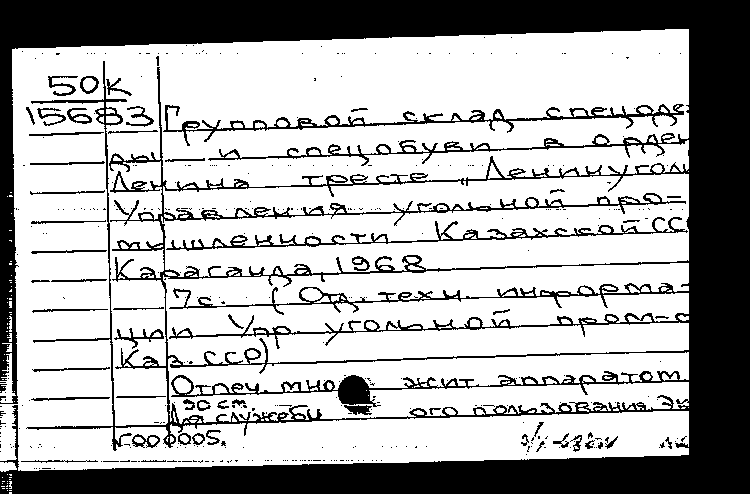 50К
15683 Групповой склад спецоде-
ды и спецобуви в орден
Ленина тресте „Ленинуголь
Управления угольной про-
мышленности Казахской ССР
Караганда, 1968.
7с. (Отд. техн. информа-
ции Упр. угольной пром-с
Каз. ССР).
Отпеч. мно жит. аппаратом.
30 см.
Для служебн ого пользования. Эк
Г000005.